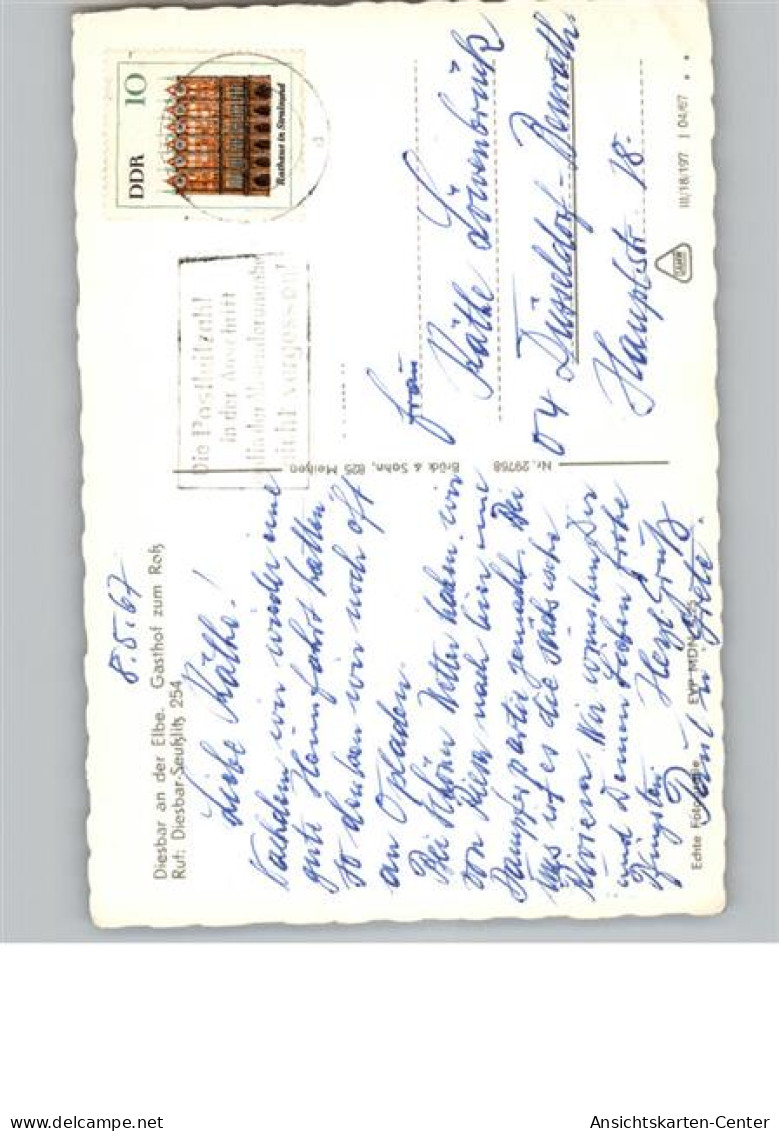 Diesbar an der Elbe. Gasthof zum Roß
Ruf: Diesbar-Seußlitz 254
8.5.67
Liebe Käthe!
Nachdem wir wieder eine
gute Heimfahrt hatten
so denken wir noch oft
an Opladen.
Bei schönem Wetter haben wir
von Riesa nach hier eine
Dampferpartie gemacht. Bei
uns ist es die sächsische
Riviera. Wir wünschen Dir
und Deinen Lieben frohe
Pfingsten. Herzl. Grüße
Paul u. Grete.
Echte Fotografie EVP MDN
Brück & Sohn, 825 Meißen
Nr. 29768
DDR 10
Rathaus in Stralsund
Die Postleitzahl
in der Anschrift
und in der Absenderangabe
nicht vergessen!
Frau
Käthe Löwenbrück
04 Düsseldorf-Benrath
Hauptstr. 18.
III/18/197 J 04/67
delcampe.net
Ansichtskarten-Center